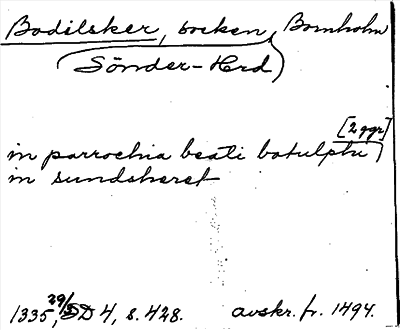 Bodilsker, socken, Bornholm
(Sönder-Hrd)
[2 ggr]
in parrochia beati botulphi
in sundsheret
1335 29/5, DD 4, s. 428. avskr. fr. 1494.